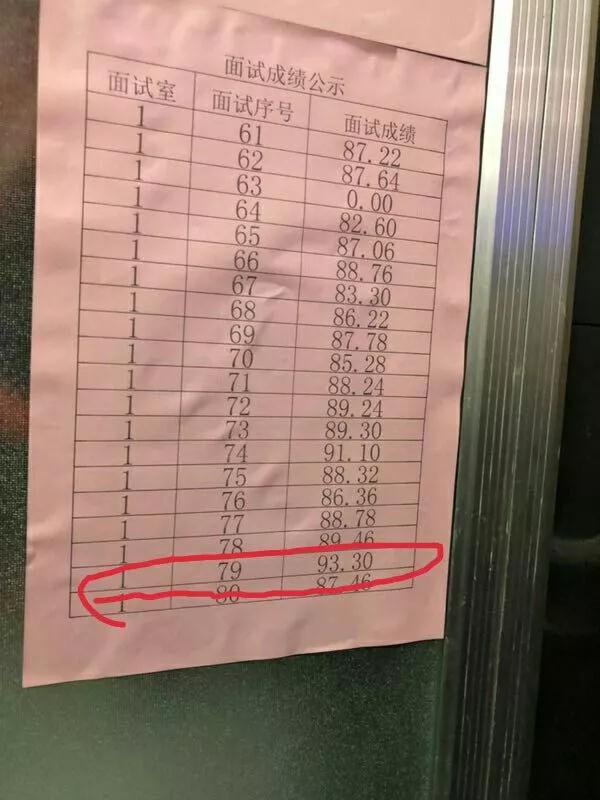 面试成绩公示
面试室 面试序号 面试成绩
1 61 87.22
1 62 87.64
1 63 0.00
1 64 82.60
1 65 87.06
1 66 88.76
1 67 83.30
1 68 86.22
1 69 87.78
1 70 85.28
1 71 88.24
1 72 89.24
1 73 89.30
1 74 91.10
1 75 88.32
1 76 86.36
1 77 88.78
1 78 89.46
1 79 93.30
1 80 87.46